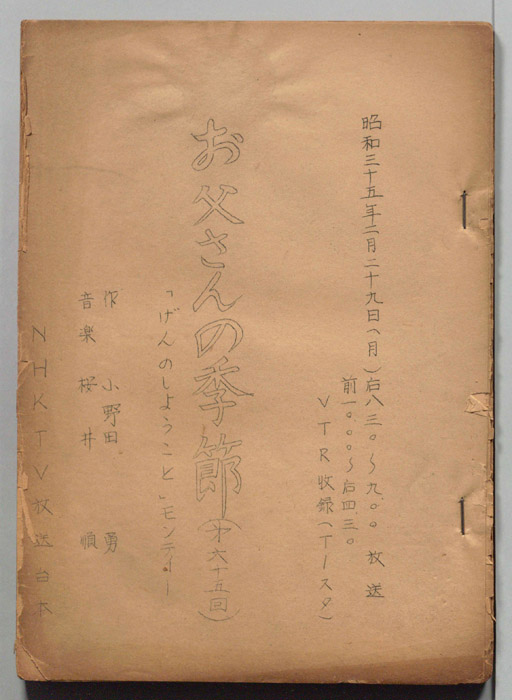 昭和三十五年二月二十九日(月)后八三〇〜九、〇〇 放送
前一〇、〇〇〜后四、三〇
VTR収録(Tースタ)
お父さんの季節(才六十五回)
「げんのしようこと」モンテイー
作 小野田 勇
音楽 桜井 順
NHKTV放送台本